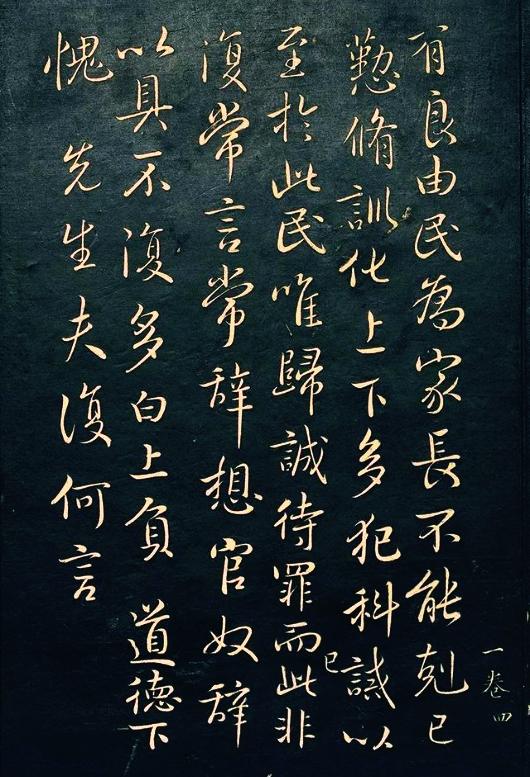 有良由民為家長不能剋己
懃脩訓化上下多犯科誡以
至於此民唯歸誠待罪而已此非
復常言常辞想官奴辞
以具不復多白上負 道德下
愧 先生夫復何言
一卷 四